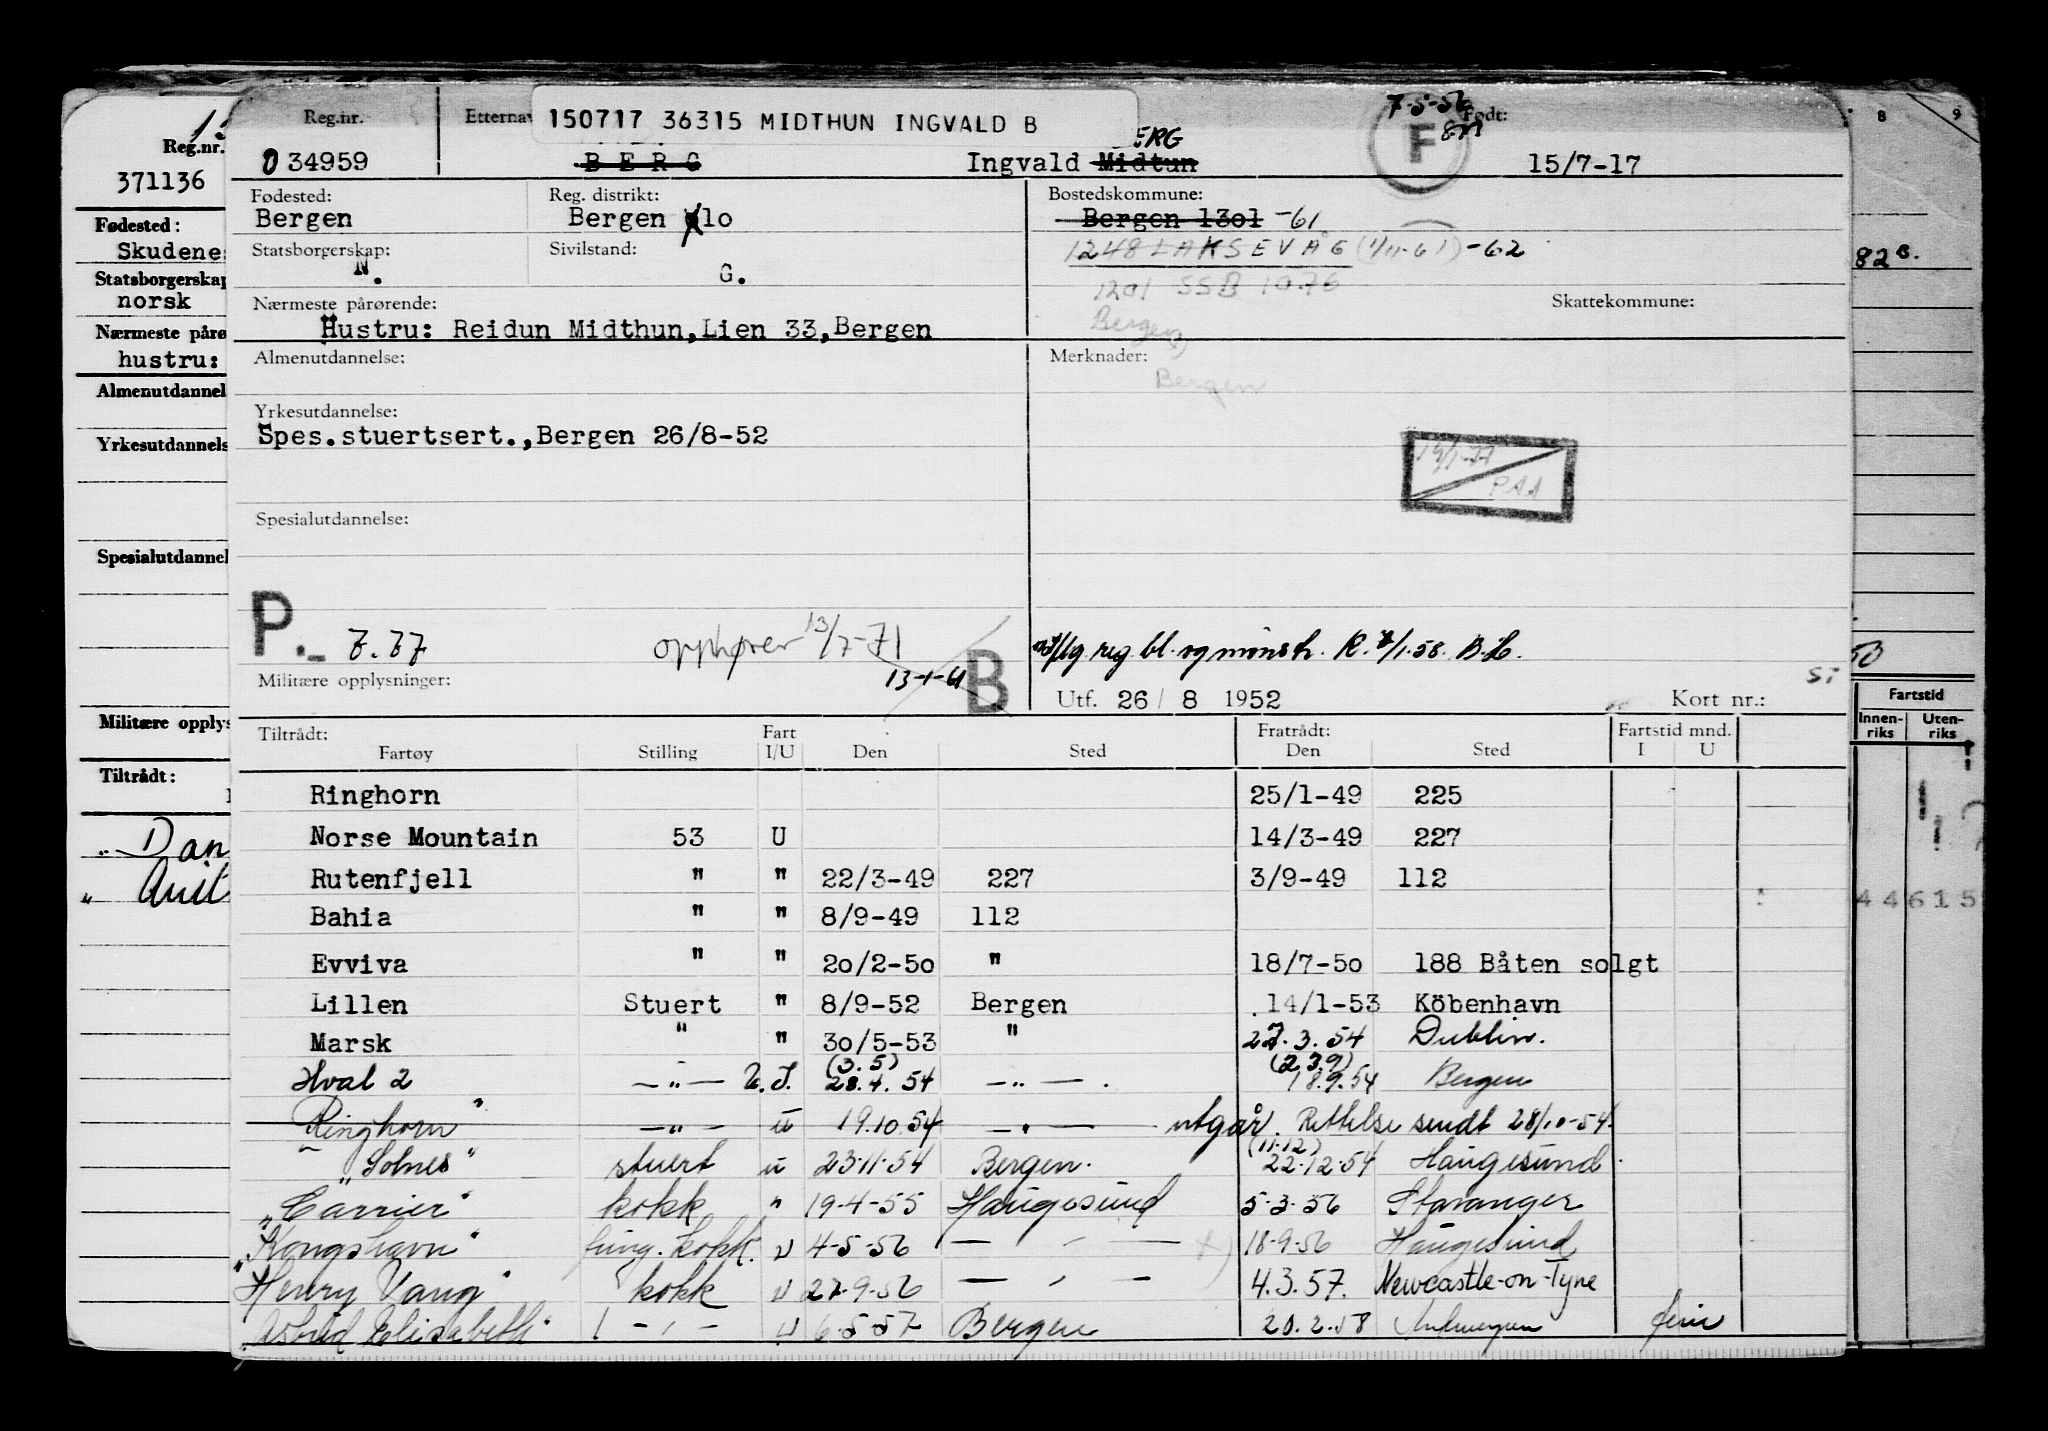 Reg.nr.
371136
Fødested:
Skudene
Statsborgerskap
norsk
Nærmeste påro
hustru:
Almenutdannel
Yrkesutdannels
Spesialutdannel
Militære opplys
Tiltrådt:
" Dan
"
Reg.nr. Etternav 150717 36315 MIDTHUN INGVALD B 7-5-56 Født:
034959 BERG Ingvald Midtun ERG F 15/7-17
Fødested: Reg. distrikt: Bostedskommune:
Bergen Bergen lo Bergen 13o1 -61
Statsborgerskap: Sivilstand: 1248 LAKSEVÅG (1/11-61) -62
N. G. 1201 SSB 10.76
Nærmeste pårørende: Bergen Skattekommune:
Hustru: Reidun Midthun,Lien 33,Bergen
Almenutdannelse: Merknader:
Bergen
Yrkesutdannelse:
Spes.stuertsert.,Bergen 26/8-52
PAA
Spesialutdannelse:
P.- 7.77 opphører 13/7-71 reg. bl. og mønsh. R. 1.58. B.L.
13-1-61 B
Militære opplysninger: Utf. 26 / 8 1952 Kort nr.:
Tiltrådt: Fart Fratrådt: Fartstid mnd.
Fartøy Stilling I/U Den Sted Den Sted I U
Ringhorn 25/1-49 225
Norse Mountain 53 U 14/3-49 227
Rutenfjell " " 22/3-49 227 3/9-49 112
Bahia " " 8/9-49 112
Evviva " " 2o/2-5o " 18/7-5o 188 Båten solgt
Lillen Stuert " 8/9-52 Bergen 14/1-53 Köbenhavn
Marsk " " 3o/5-53 " 27.3.54 Dublin.
(3.5) (23.9)
Hval 2 -"- U.I. 28.4.54 -"-. 18.9.54 Bergen
Ringhorn" -"- u 19.10.54 -"- utgår. Rettelse sendt 28/10-54.
(11.12)
"Solnes" stuert u 23.11.54 Bergen. 22.12.54 Haugesund.
"Carrier" kokk " 19-4-55 Haugesund 5.3.56 Stavanger
"Kongshavn" fung. kokk. u 4-5-56 - " - x) 18-9-56 Haugesund
"Henry Vang" kokk u 27-9-56 - " - 4.3.57. Newcastle-on-Tyne
"Astrid Elisabeth" - " - u 6-5-57 Bergen 20.2.58 Antwerpen
8 9
82
Fartstid
Innen-riks Uten-riks
44615